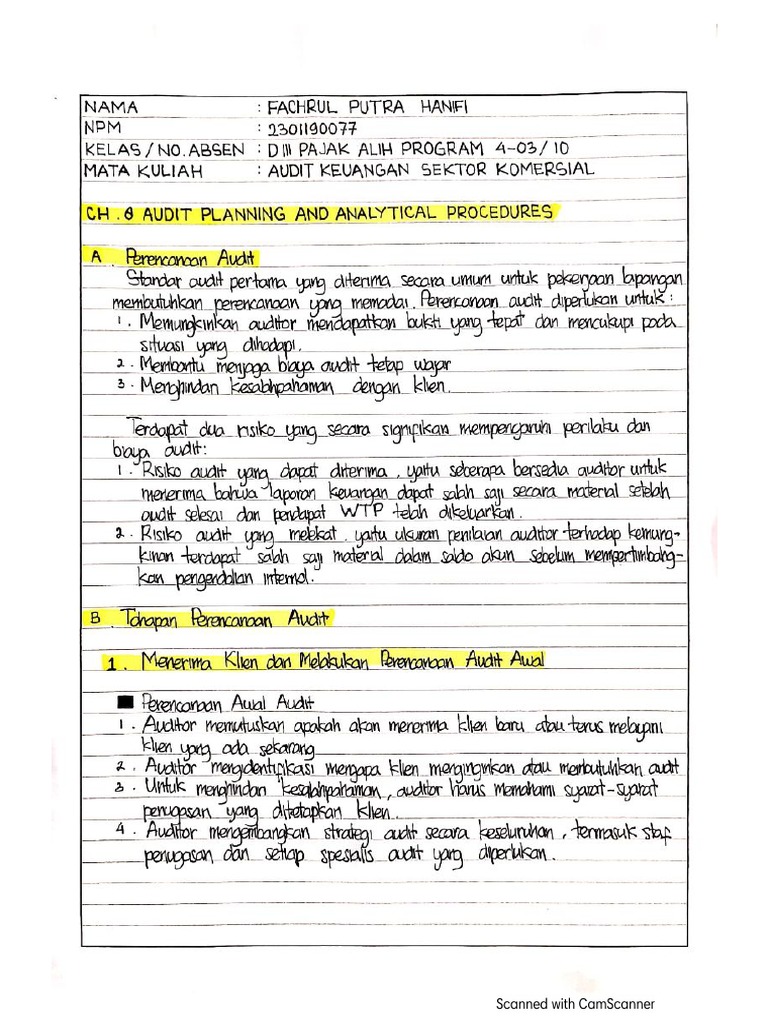 NAMA : FACHRUL PUTRA HANIFI
NPM : 2301190077
KELAS/NO.ABSEN : D III PAJAK ALIH PROGRAM 4-03/10
MATA KULIAH : AUDIT KEUANGAN SEKTOR KOMERSIAL
CH. 8 AUDIT PLANNING AND ANALYTICAL PROCEDURES
A. Perencanaan Audit
Standar audit pertama yang diterima secara umum untuk pekerjaan lapangan
membutuhkan perencanaan yang memadai. Perencanaan audit diperlukan untuk:
1. Memungkinkan auditor mendapatkan bukti yang tepat dan mencukupi pada
situasi yang dihadapi.
2. Membantu menjaga biaya audit tetap wajar
3. Menghindari kesalahpahaman dengan klien.
Terdapat dua risiko yang secara signifikan mempengaruhi perilaku dan
biaya audit:
1. Risiko audit yang dapat diterima, yaitu seberapa bersedia auditor untuk
menerima bahwa laporan keuangan dapat salah saji secara material setelah
audit selesai dan pendapat WTP telah dikeluarkan.
2. Risiko audit yang melekat, yaitu ukuran penilaian auditor terhadap kemung-
kinan terdapat salah saji material dalam saldo akun sebelum mempertimbang-
kan pengendalian internal.
B. Tahapan Perencanaan Audit
1. Menerima Klien dan Melakukan Perencanaan Audit Awal
■ Perencanaan Awal Audit
1. Auditor memutuskan apakah akan menerima klien baru atau terus melayani
klien yang ada sekarang
2. Auditor mengidentifikasi mengapa klien menginginkan atau membutuhkan audit
3. Untuk menghindari kesalahpahaman, auditor harus memahami syarat-syarat
penugasan yang ditetapkan klien.
4. Auditor mengembangkan strategi audit secara keseluruhan, termasuk staf
penugasan dan setiap spesialis audit yang diperlukan.
Scanned with CamScanner